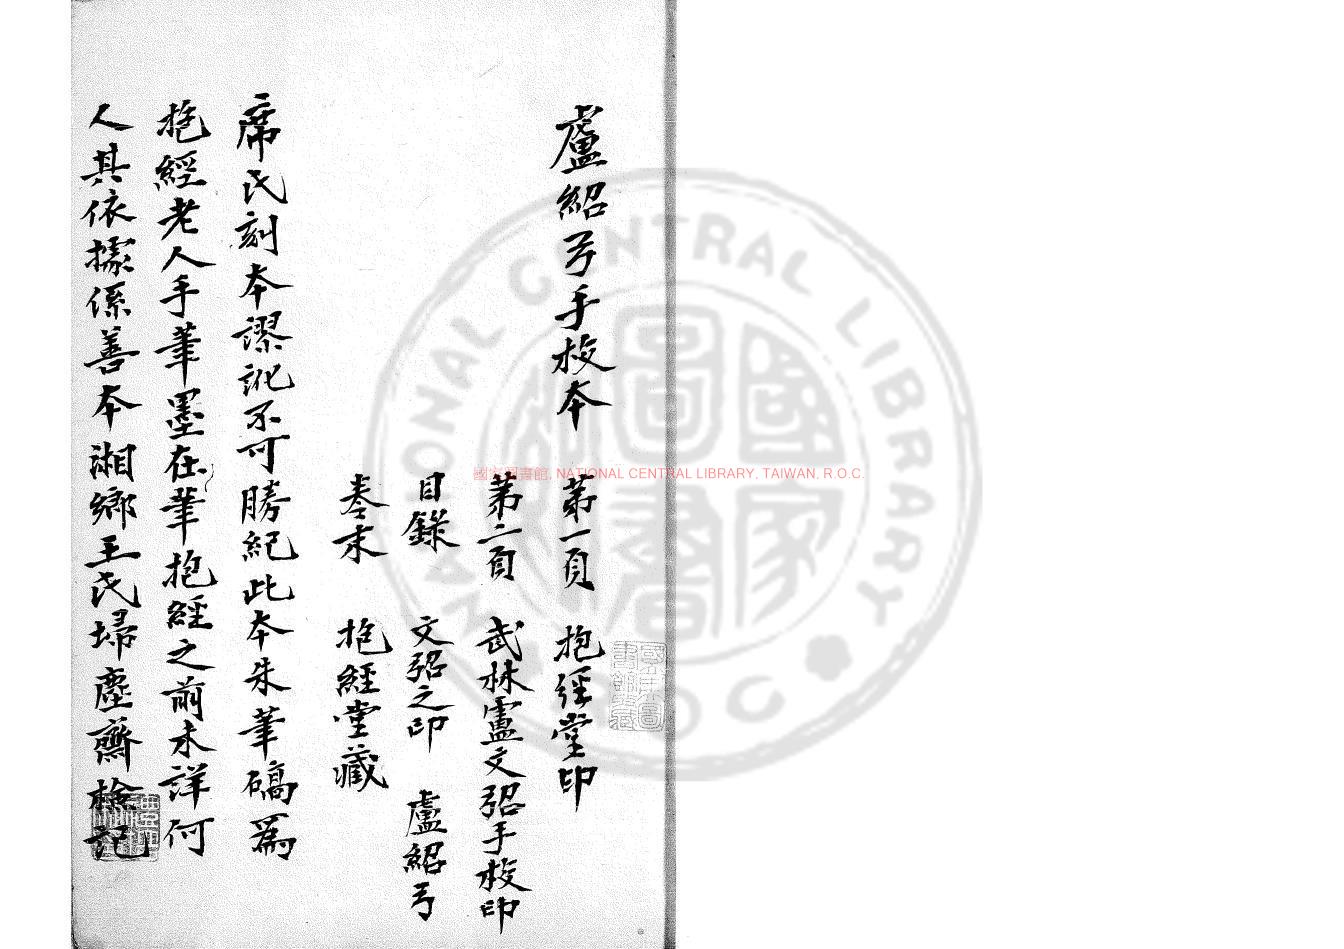 盧紹弓手校本 第一頁 抱經堂印
第二頁 武林盧文弨手校印
目錄 文弨之印 盧紹弓
卷末 抱經堂藏
席氏刻本謬訛不可勝紀此本朱筆確爲
抱經老人手筆墨在筆抱經之前未詳何
人其依據係善本湘鄉王氏埽塵齋檢記
國家圖書館, NATIONAL CENTRAL LIBRARY, TAIWAN, R.O.C.
NATIONAL CENTRAL LIBRARY
ROC